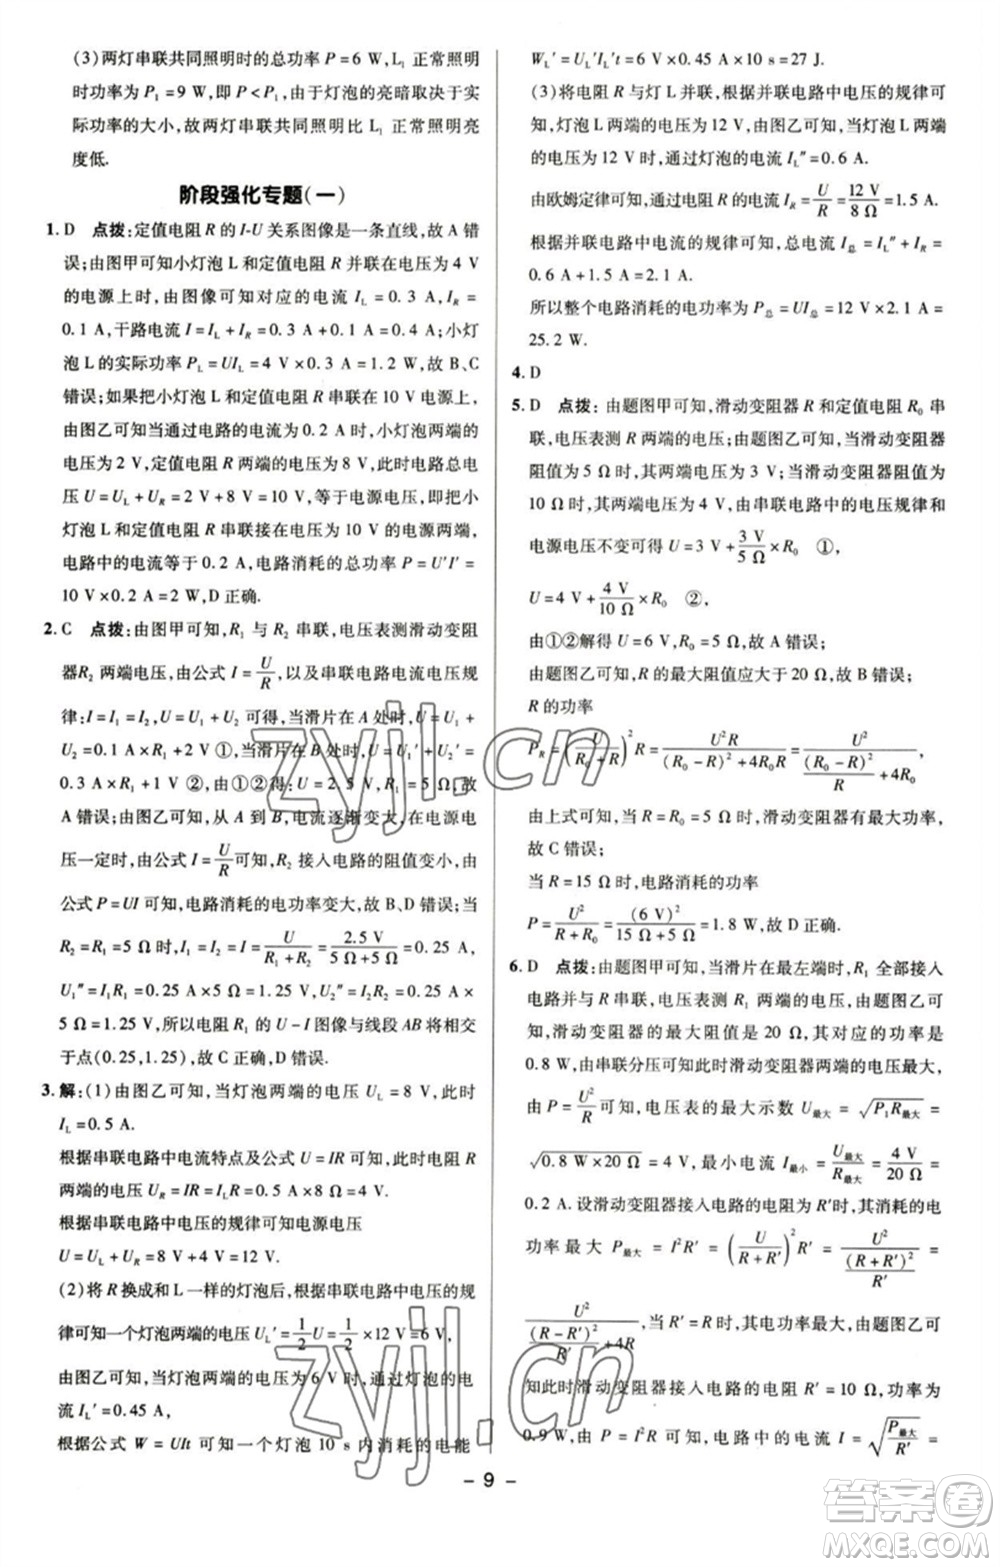 (3)两灯串联共同照明时的总功率 P=6 W,L₁ 正常照明
时功率为 P₁=9 W,即 P<P₁,由于灯泡的亮暗取决于
实际功率的大小,故两灯串联共同照明比 L₁ 正常照明亮
度低.
阶段强化专题(一)
1. D 点拨:定值电阻 R 的 I-U 关系图像是一条直线,故 A 错
误;由图甲可知小灯泡 L 和定值电阻 R 并联在电压为 4 V
的电源上时,由图像可知对应的电流 I_L=0.3 A,I_R=
0.1 A,干路电流 I=I_L+I_R=0.3 A+0.1 A=0.4 A;小灯
泡 L 的实际功率 P_L=UI_L=4 V×0.3 A=1.2 W,故 B、C
错误;如果把小灯泡 L 和定值电阻 R 串联在电路中,
由图乙可知当通过电路的电流为 0.2 A 时,小灯泡两端的电
压为 2 V,定值电阻 R 两端的电压为 8 V,此时电路总电
压 U=U_L+U_R=2 V+8 V=10 V,等于电源电压,即把小
灯泡 L 和定值电阻 R 串联接在电压为 10 V 的电源两端,
电路中的电流等于 0.2 A,电路消耗的总功率 P=U'I'=
10 V×0.2 A=2 W,D 正确.
2. C 点拨:由图甲可知,R₁ 与 R₂ 串联,电压表测滑动变阻
器R₂ 两端电压,由公式 I=U/R,以及串联电路电流电压规
律:I=I₁=I₂,U=U₁+U₂ 可得,当滑片在 A 处时,U=U₁+
U₂=0.2 A×R₁+2 V ①,当滑片在 B 处时,U=U₁'+U₂'=
0.3 A×R₁+1 V ②,由①②得:U=2.5 V,R₁=5 Ω,故
A 错误;由图乙可知,从 A 到 B,电流逐渐变大,在电源电
压一定时,由公式 I=U/R可知,R₂ 接入电路的阻值变小,由
公式 P=UI 可知,电路消耗的电功率变大,故 B、D 错误;当
R₂=R₁=5 Ω时,I₁=I₂=I=U/(R₁+R₂)=2.5 V/(5 Ω+5 Ω)=0.25 A,
U₁″=I₁R₁=0.25 A×5 Ω=1.25 V,U₂″=I₂R₂=0.25 A×
5 Ω=1.25 V,所以电阻 R₁ 的 U-I 图像与线段 AB 将相交
于点(0.25,1.25),故 C 正确,D 错误.
3. 解:(1)由图乙可知,当灯泡两端的电压 U_L=8 V,此时
I_L=0.5 A.
根据串联电路中电流特点及公式 U=IR 可知,此时电阻 R
两端的电压 U_R=IR=0.5 A×8 Ω=4 V.
根据串联电路中电压的规律可知电源电压
U=U_L+U_R=8 V+4 V=12 V.
(2)将 R 换成和 L 一样的灯泡后,根据串联电路中电压的规
律可知一个灯泡两端的电压 U_L'=1/2U=1/2×12 V=6 V,
由图乙可知,当灯泡两端的电压为 6 V 时,通过灯泡的电
流 I_L'=0.45 A,
根据公式 W=UIt 可知一个灯泡 10 s 内消耗的电能
W_L'=U_L'I_L't=6 V×0.45 A×10 s=27 J.
(3)将电阻 R 与灯 L 并联,根据并联电路中电压的规律可
知,灯泡 L 两端的电压为 12 V,由图乙可知,当灯泡 L 两端
的电压为 12 V 时,通过灯泡的电流 I_L″=0.6 A.
由欧姆定律可知,此时通过电阻的电流 I_R=U/R=12 V/8 Ω=1.5 A,
根据并联电路中电流的规律可知,总电流 I_总=I_L″+I_R=
0.6 A+1.5 A=2.1 A.
所以整个电路消耗的电功率为 P_总=UI_总=12 V×2.1 A=
25.2 W.
4. D
5. D 点拨:由题图甲可知,滑动变阻器 R 和定值电阻 R₀ 串
联,电压表测 R 两端的电压;由题图乙可知,当滑动变阻器
阻值为 5 Ω时,其两端电压为 3 V;当滑动变阻器阻值为
10 Ω时,其两端电压为 4 V,由串联电路中的电压规律和
电源电压不变可得 U=3 V+3 V/5 Ω×R₀ ①,
U=4 V+4 V/10 Ω×R₀ ②,
由①②解得 U=6 V,R₀=5 Ω,故 A 错误;
由题图乙可知,R 的最大阻值应大于 20 Ω,故 B 错误;
R 的功率
P_R=(U/(R₀+R))²R=U²R/((R₀-R)²+4R₀R)=U²/((R₀-R)²/R+4R₀),
由上式可知,当 R=R₀=5 Ω时,滑动变阻器有最大功率,
故 C 错误;
当 R=15 Ω时,电路消耗的功率
P=U²/(R+R₀)=(6 V)²/(15 Ω+5 Ω)=1.8 W,故 D 正确.
6. D 点拨:由题图甲可知,当滑片在最左端时,R₁ 全部接入
电路并与 R 串联,电压表测 R₁ 两端的电压,由题图乙可
知,滑动变阻器的最大阻值是 20 Ω,其对应的功率是
0.8 W,由串联分压可知此时滑动变阻器两端的电压最大,
由 P=U²/R可知,电压表的最大示数 U_最大=√(P₁R_最大)=
√(0.8 W×20 Ω)=4 V,最小电流 I_最小=U_最大/R_最大=4 V/20 Ω=
0.2 A.设滑动变阻器接入电路的电阻为 R',其消耗的电
功率最大 P_最大=I²R'=(U/(R+R'))²R'=U²/((R+R')²/R')=
U²/((R-R')²/R'+4R),当 R'=R 时,其电功率最大,由题图乙可
知此时滑动变阻器接入电路的电阻 R'=10 Ω,功率为
0.9 W,由 P=I²R 可知,电路中的电流 I=√(P_最大/R')=
- 9 -
zyjl.cn
zyjl.cn
答案圈
MXQE.COM